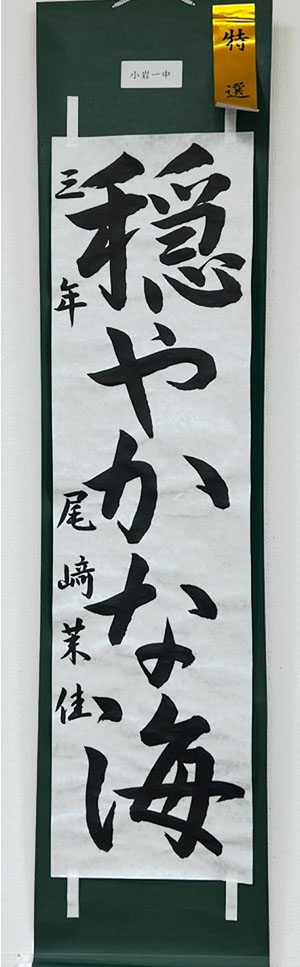 特選
小岩一中
穏やかな海
三年 尾﨑茉佳